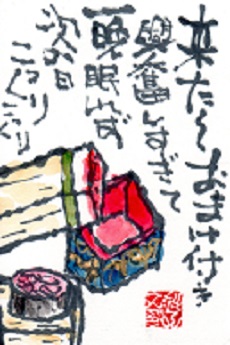 来た〜おまけ付き
興奮しすぎて
一晩眠れず
次の日
こっくりこっくり